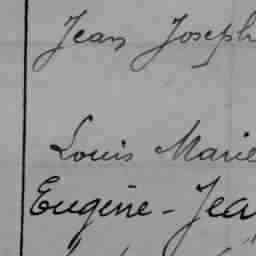 Jean Joseph
Louis Marie
Eugène - Jea